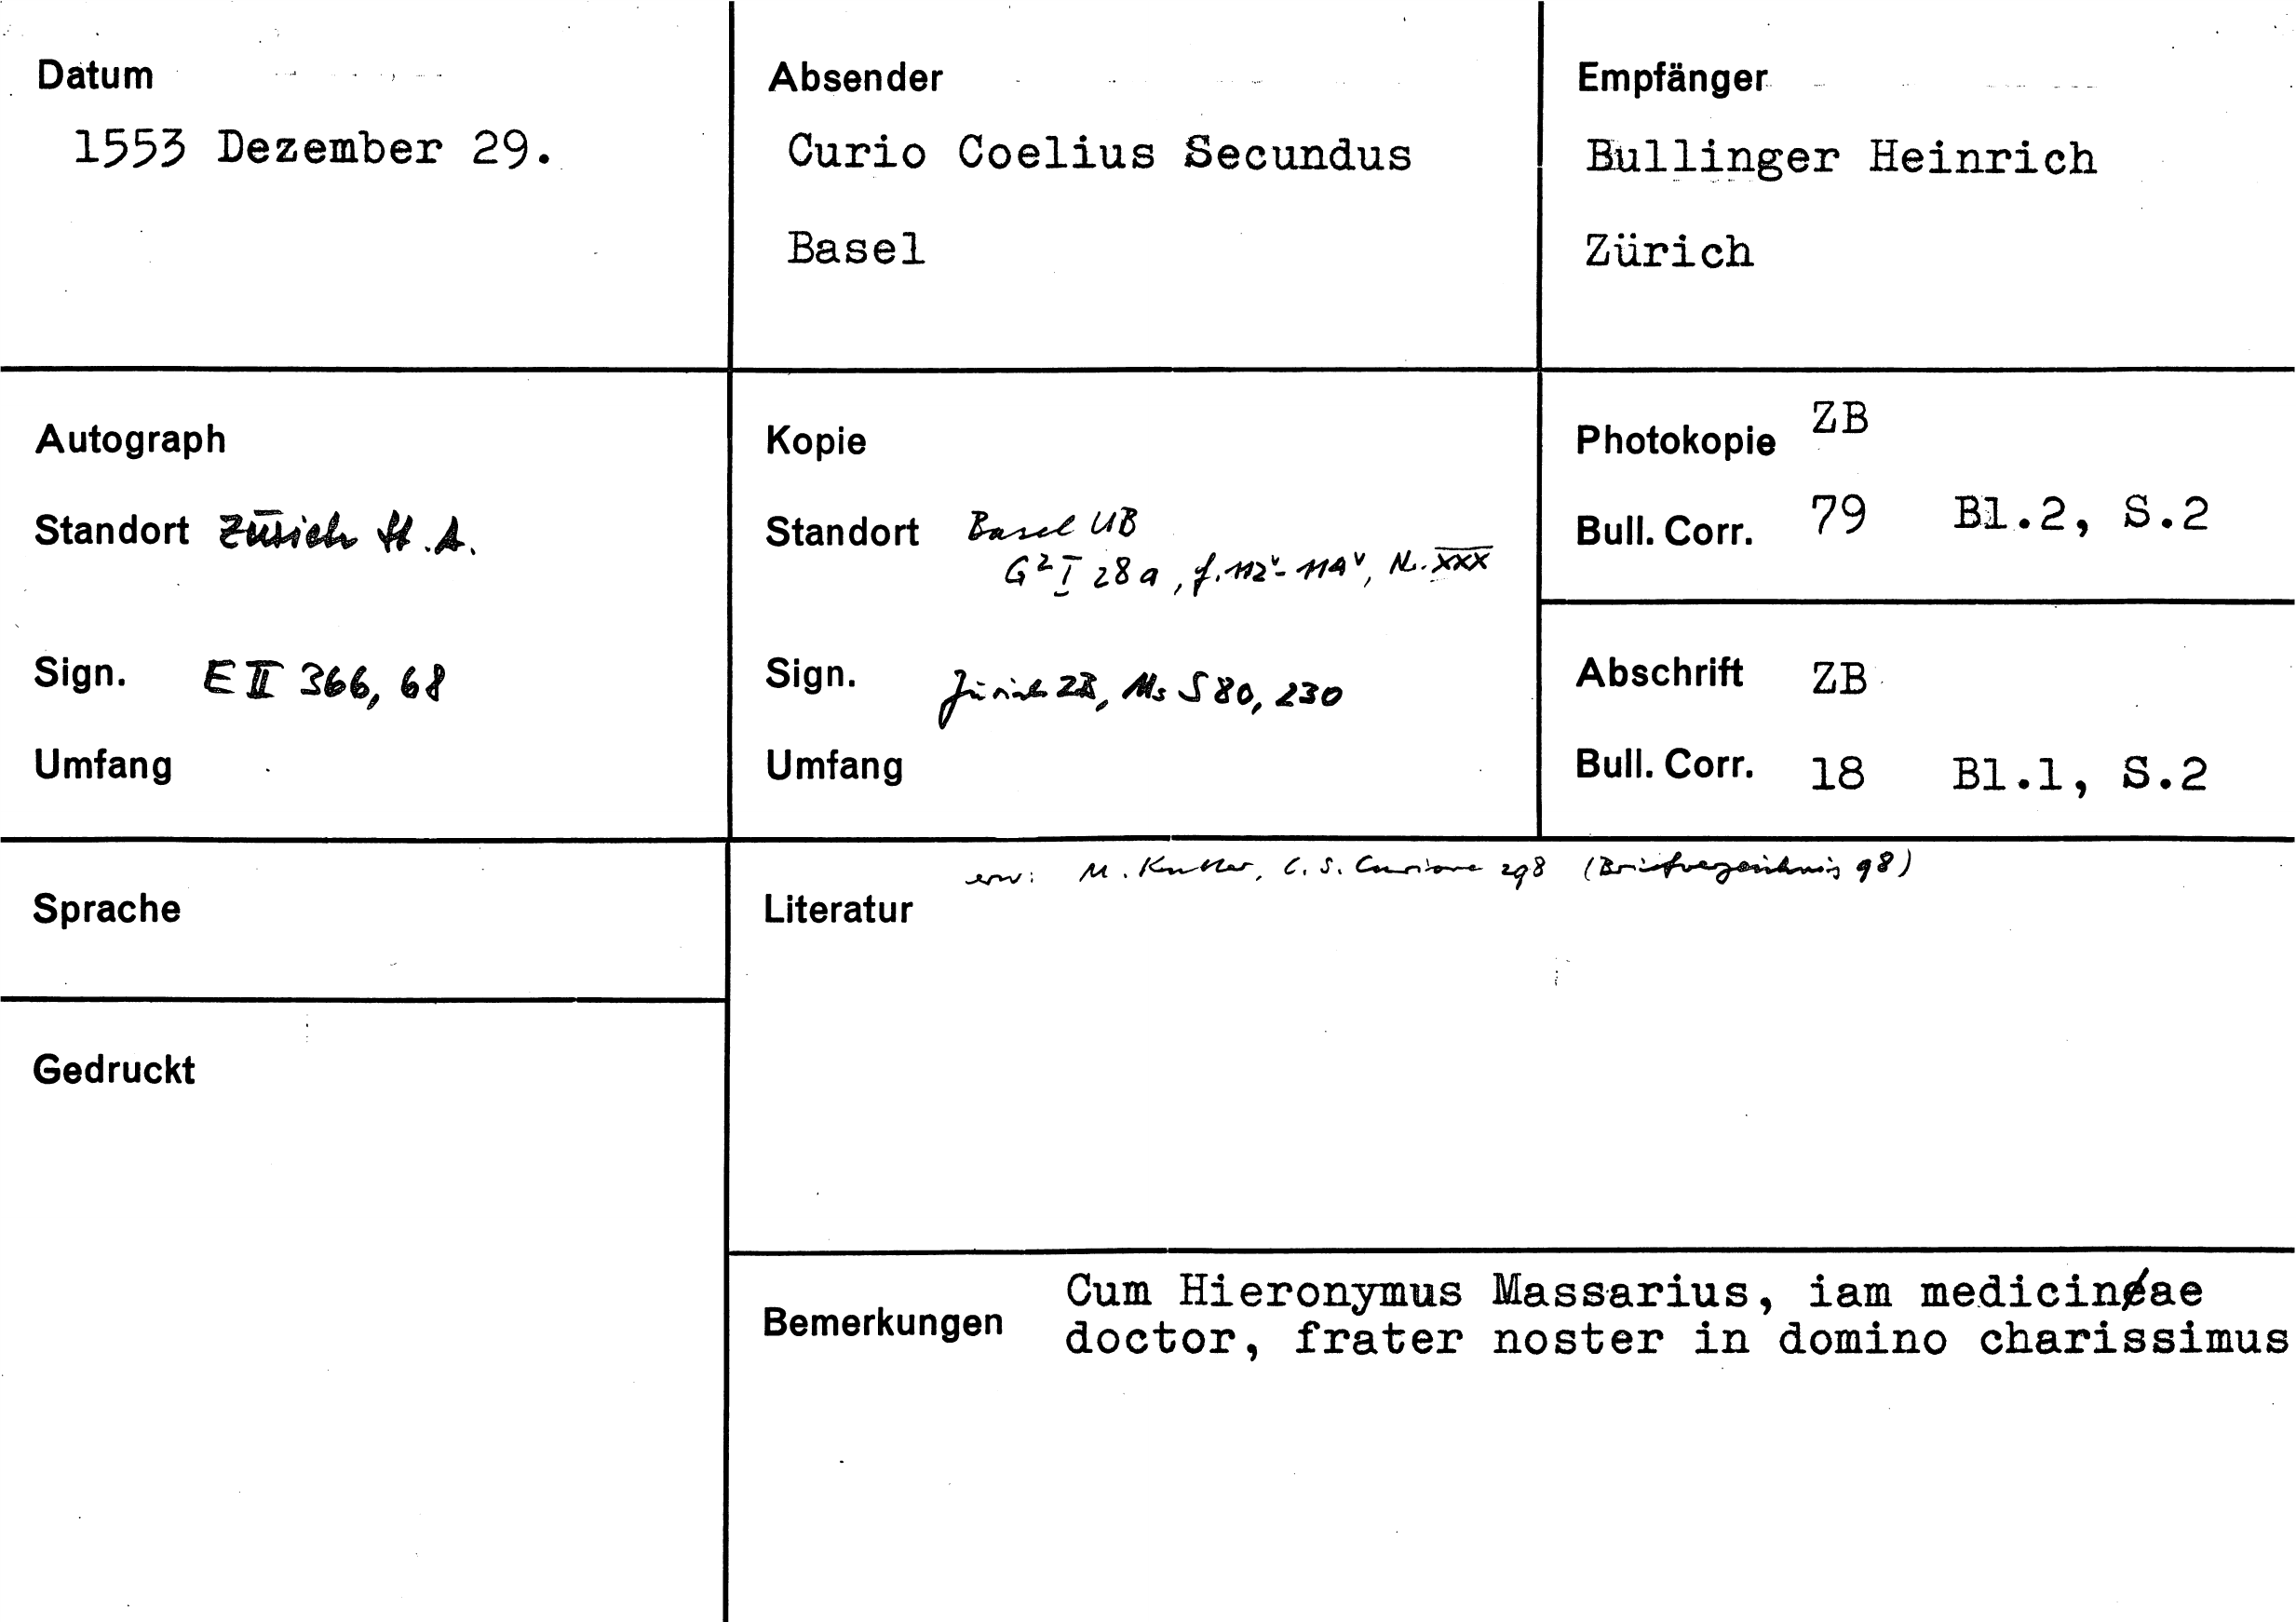 Datum
1553 Dezember 29.
Absender
Curio Coelius Secundus
Basel
Empfänger
Bullinger Heinrich
Zürich
Autograph
Standort Zürich St.A.
Sign. E II 366, 68
Umfang
Kopie
Standort Basel UB
G² I 28a, f. 112v-114v, Nr. XXX
Sign. Zürich ZB, Ms S 80, 230
Umfang
Photokopie ZB
Bull. Corr. 79 Bl.2, S.2
Abschrift ZB
Bull. Corr. 18 Bl.1, S.2
Sprache
Gedruckt
Literatur erw: M. Kutter, C. S. Curione 298 (Briefverzeichnis 98)
Bemerkungen Cum Hieronymus Massarius, iam medicinae
doctor, frater noster in domino charissimus